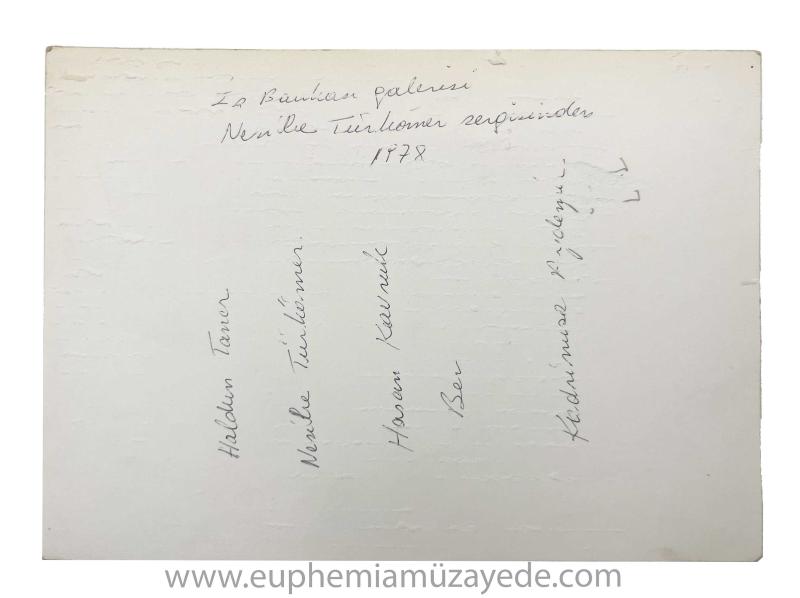 İş Bankası galerisi
Nesibe Türkömer sergisinden
1978
Haldun Taner
Nesibe Türkömer.
Hasan Kavruk
Ben
Kadrinusa
www.euphemiamüzayede.com